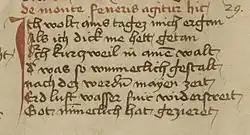 de monte feneris agitur hic 29.
Ich wolt ains tages mich ergan
Als ich dick me hett getan
Ich kurczweil in ainē walt
D was so wunneclich gestalt
nach des werden mayen zeit
Erd luft wasser sunē widerstreit
Got minneclich hat gezieret